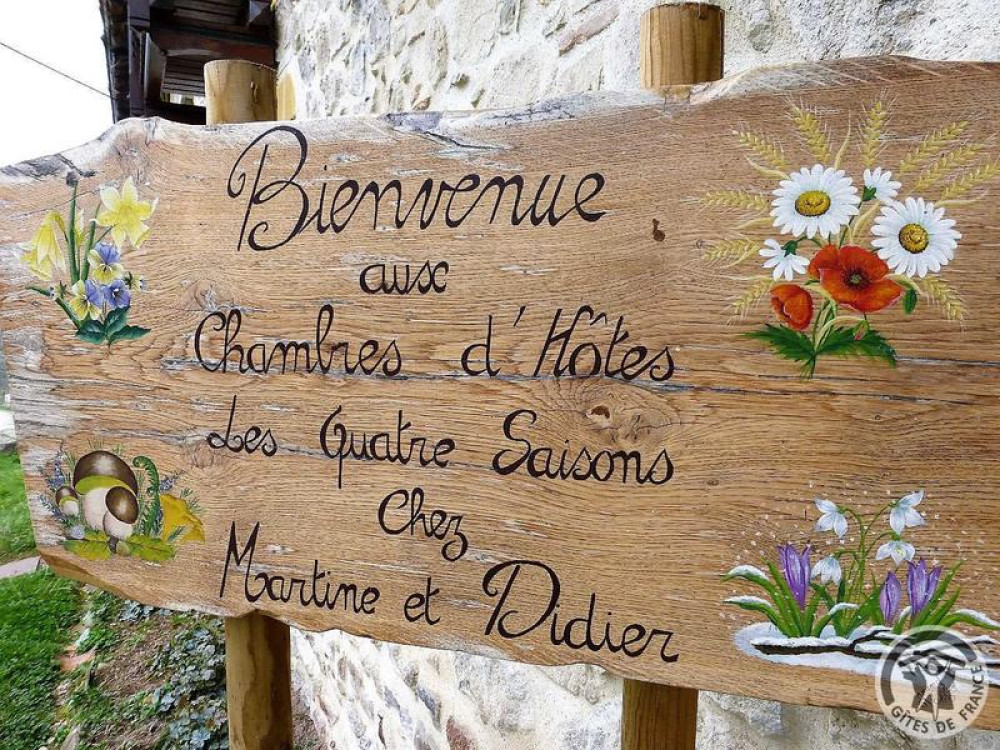 Bienvenue
aux
Chambres d'Hôtes
Les Quatre Saisons
Chez
Martine et Didier
GÎTES DE FRANCE